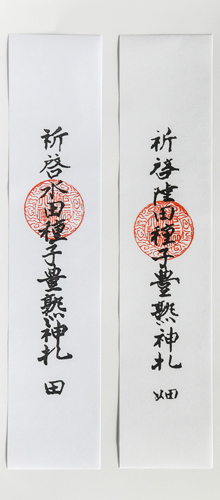 祈啓陸田種子豊熟神札 畑
祈啓水田種子豊熟神札 田